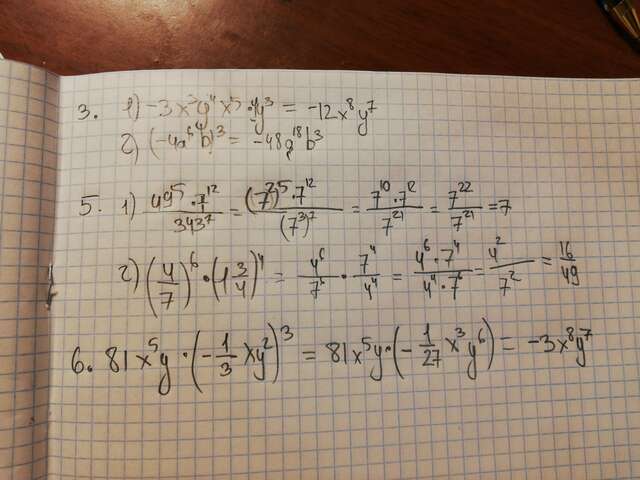 3. 1) -3x³y⁴x⁵·4y³ = -12x⁸y⁷
2) (-4a⁶b)³ = -48a¹⁸b³
5. 1) 49⁵·7¹²/343⁷ = (7²)⁵·7¹²/(7³)⁷ = 7¹⁰·7¹²/7²¹ = 7²²/7²¹ = 7
2) (4/7)⁶·(1 3/4)⁴ = 4⁶/7⁶·7⁴/4⁴ = 4⁶·7⁴/4⁴·7⁶ = 4²/7² = 16/49
6. 81x⁵y·(-1/3xy²)³ = 81x⁵y·(-1/27x³y⁶) = -3x⁸y⁷